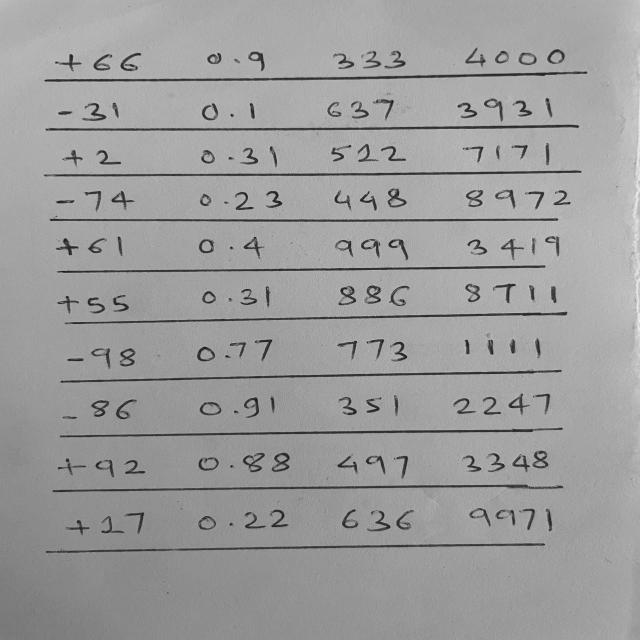 +66 0.9 333 4000
-31 0.1 637 3931
+2 0.31 512 7171
-74 0.23 448 8972
+61 0.4 999 3419
+55 0.31 886 8711
-98 0.77 773 1111
-86 0.91 351 2247
+92 0.88 497 3348
+17 0.22 636 9971